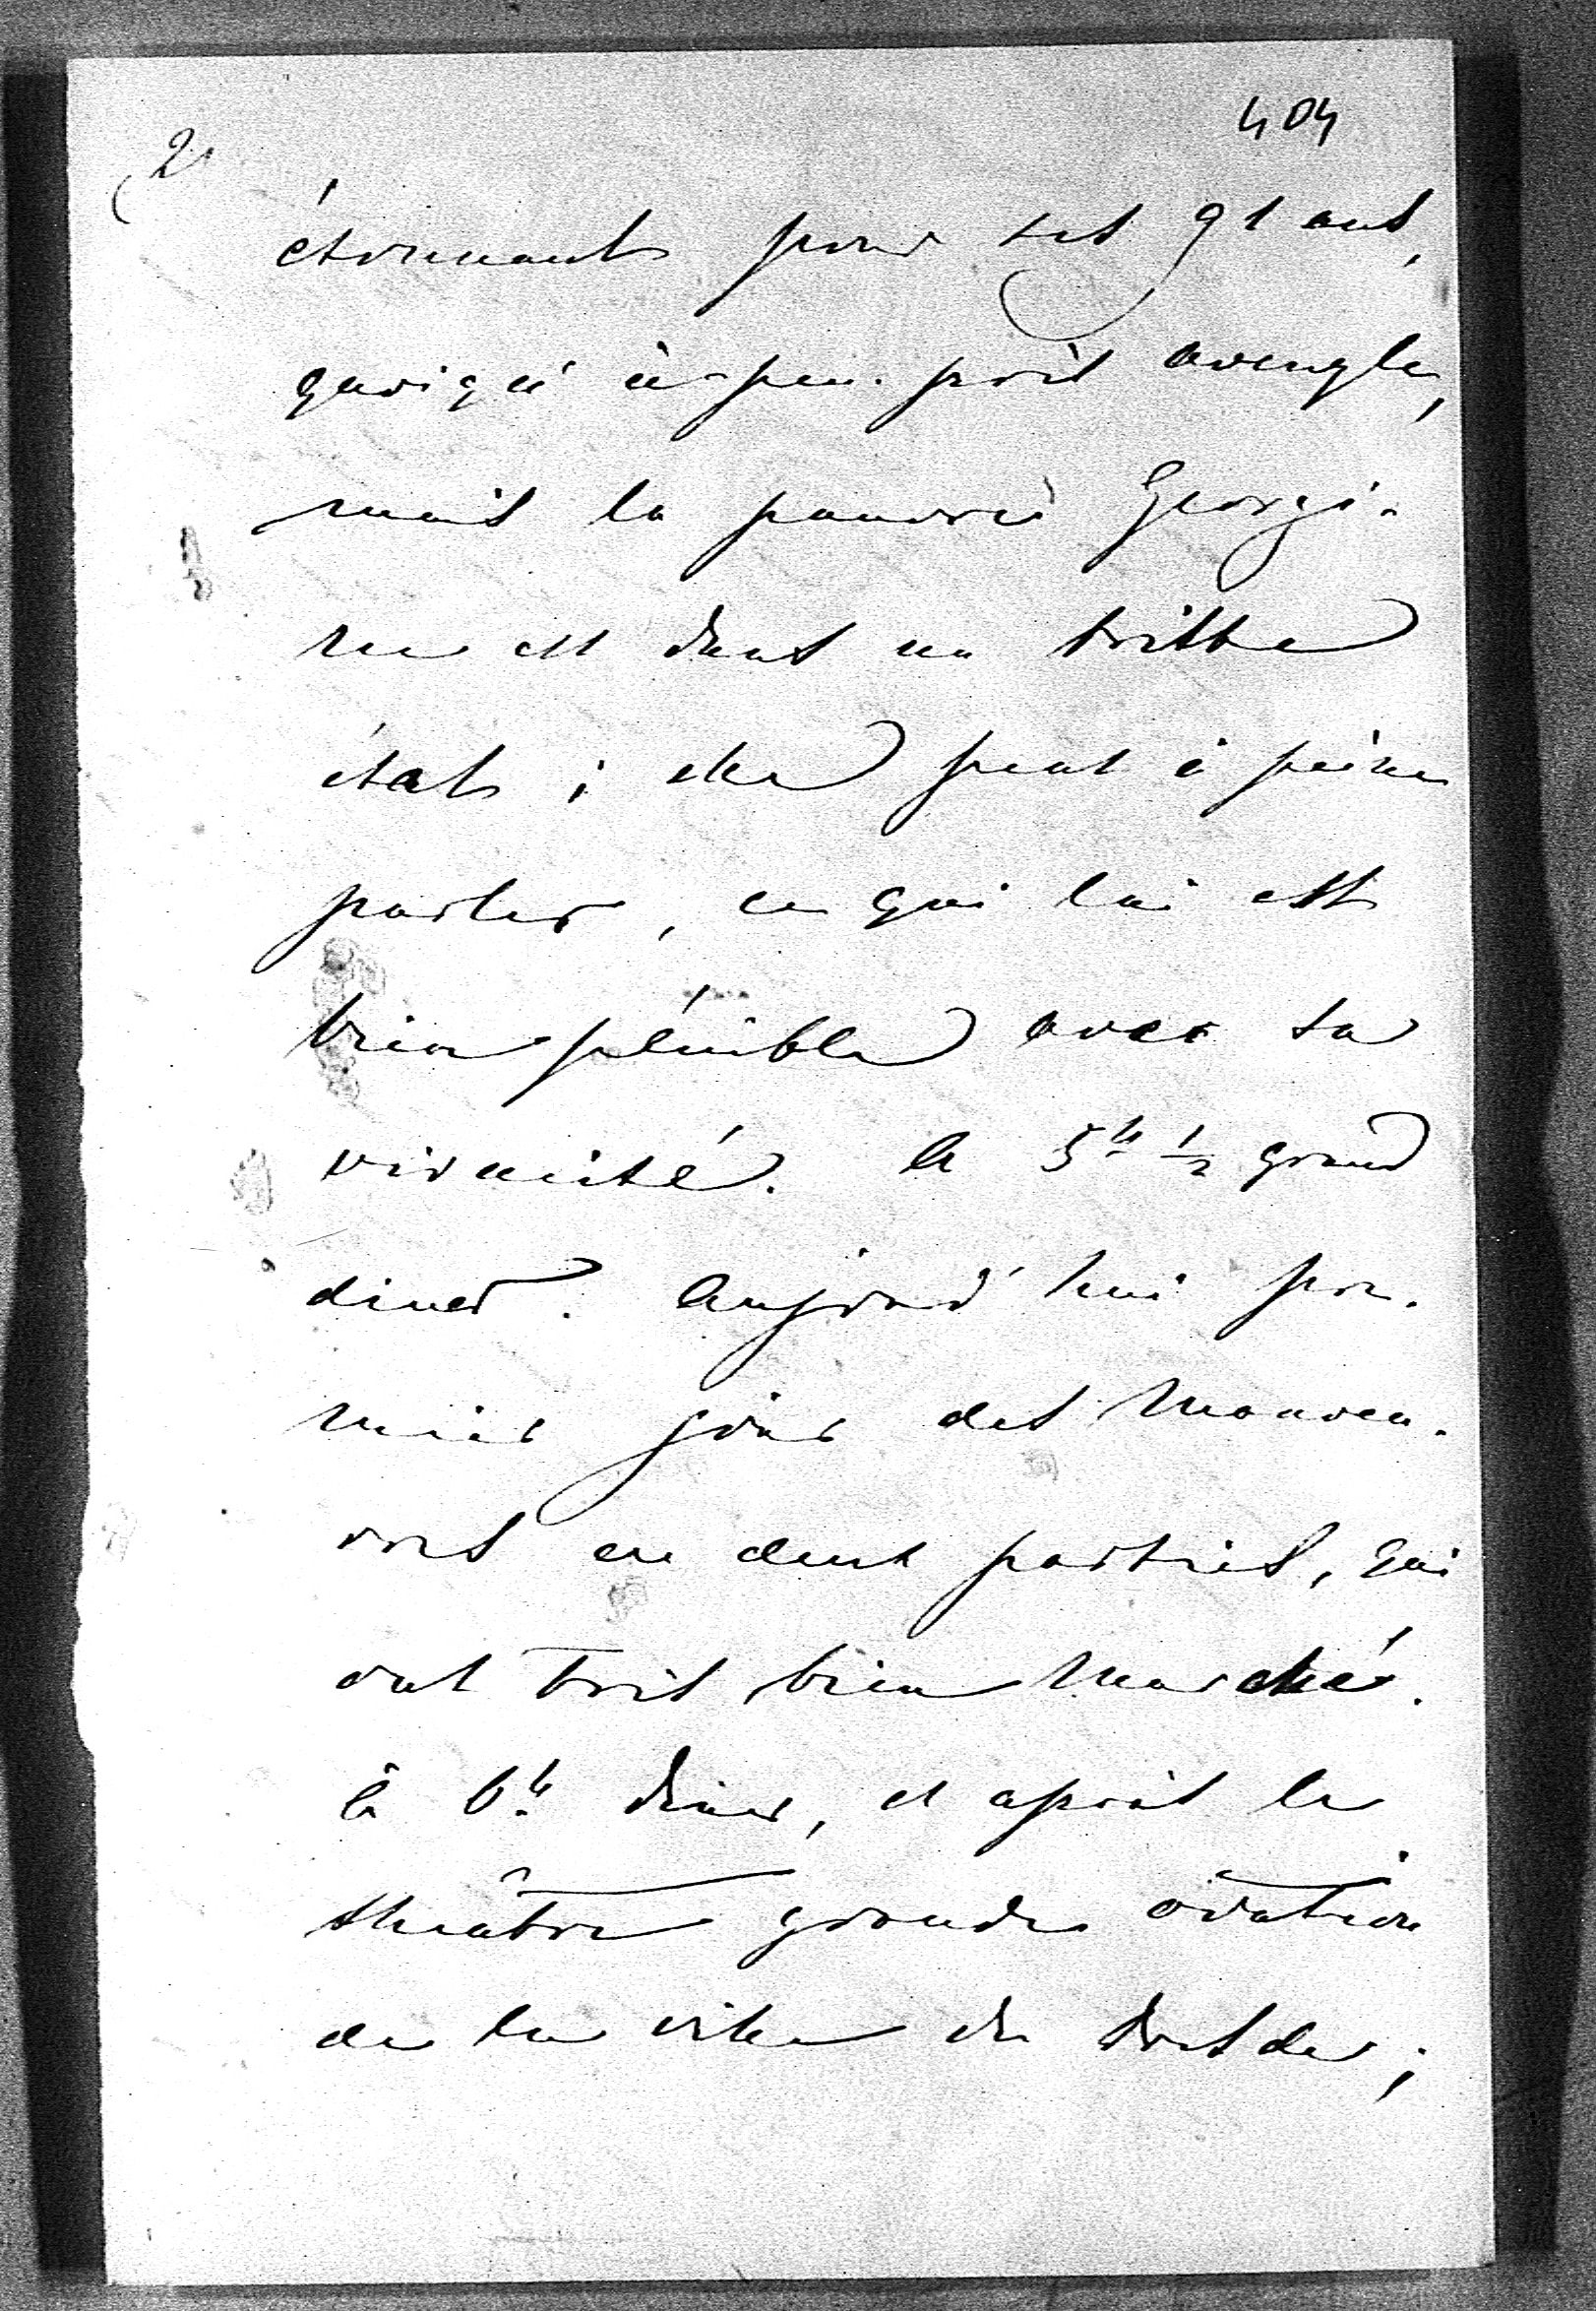 404
(2
étonnant pour ses 91 ans,
quoique à-peu-près aveugle,
mais la pauvre Georgi-
ne est dans un triste
état ; elle peut à peine
parler, ce qui lui est
bien pénible avec sa
vivacité. A 5h ½ grand
diner. Aujourd'hui pre-
mier jour des Manoeu-
vres en deux parties, qui
ont très bien marché.
à 6h. diner, et après le
théâtre grande ovation
de la ville de Dresde ;